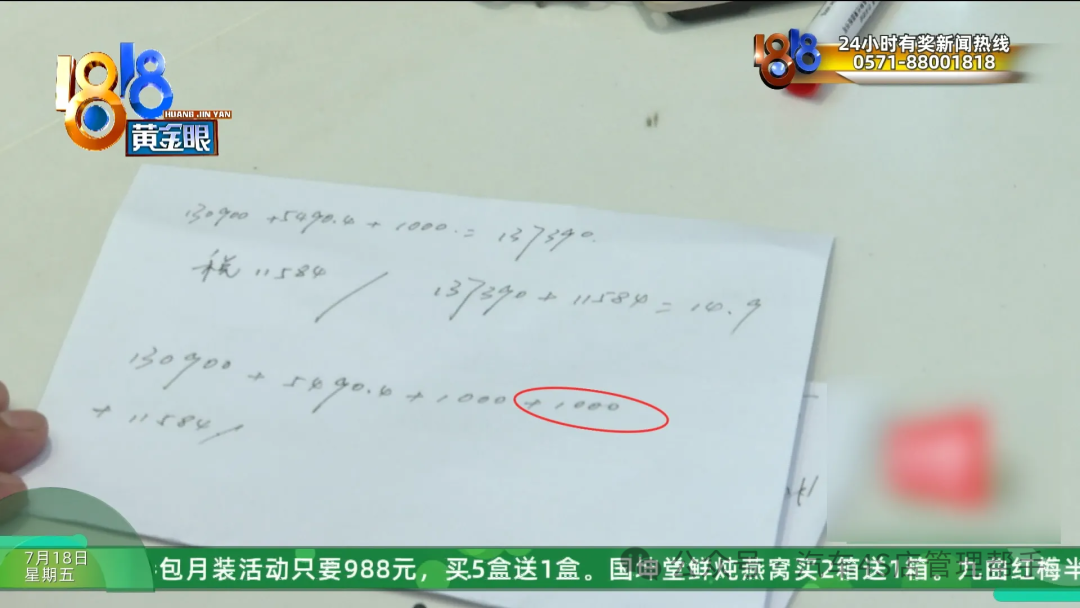 1818
HUANG JIN YAN
黄金眼
1818
24小时有奖新闻热线
0571-88001818
130900+5490.4+1000.=137390.
税11584/
137390+11584=14.9
130900+5490.4+1000+1000
+11584/
7月18日
星期五
包月装活动只要988元，买5盒送1盒。国坤堂鲜炖燕窝买2箱送1箱。九曲红梅半
公众号 汽车4S店管理帮手